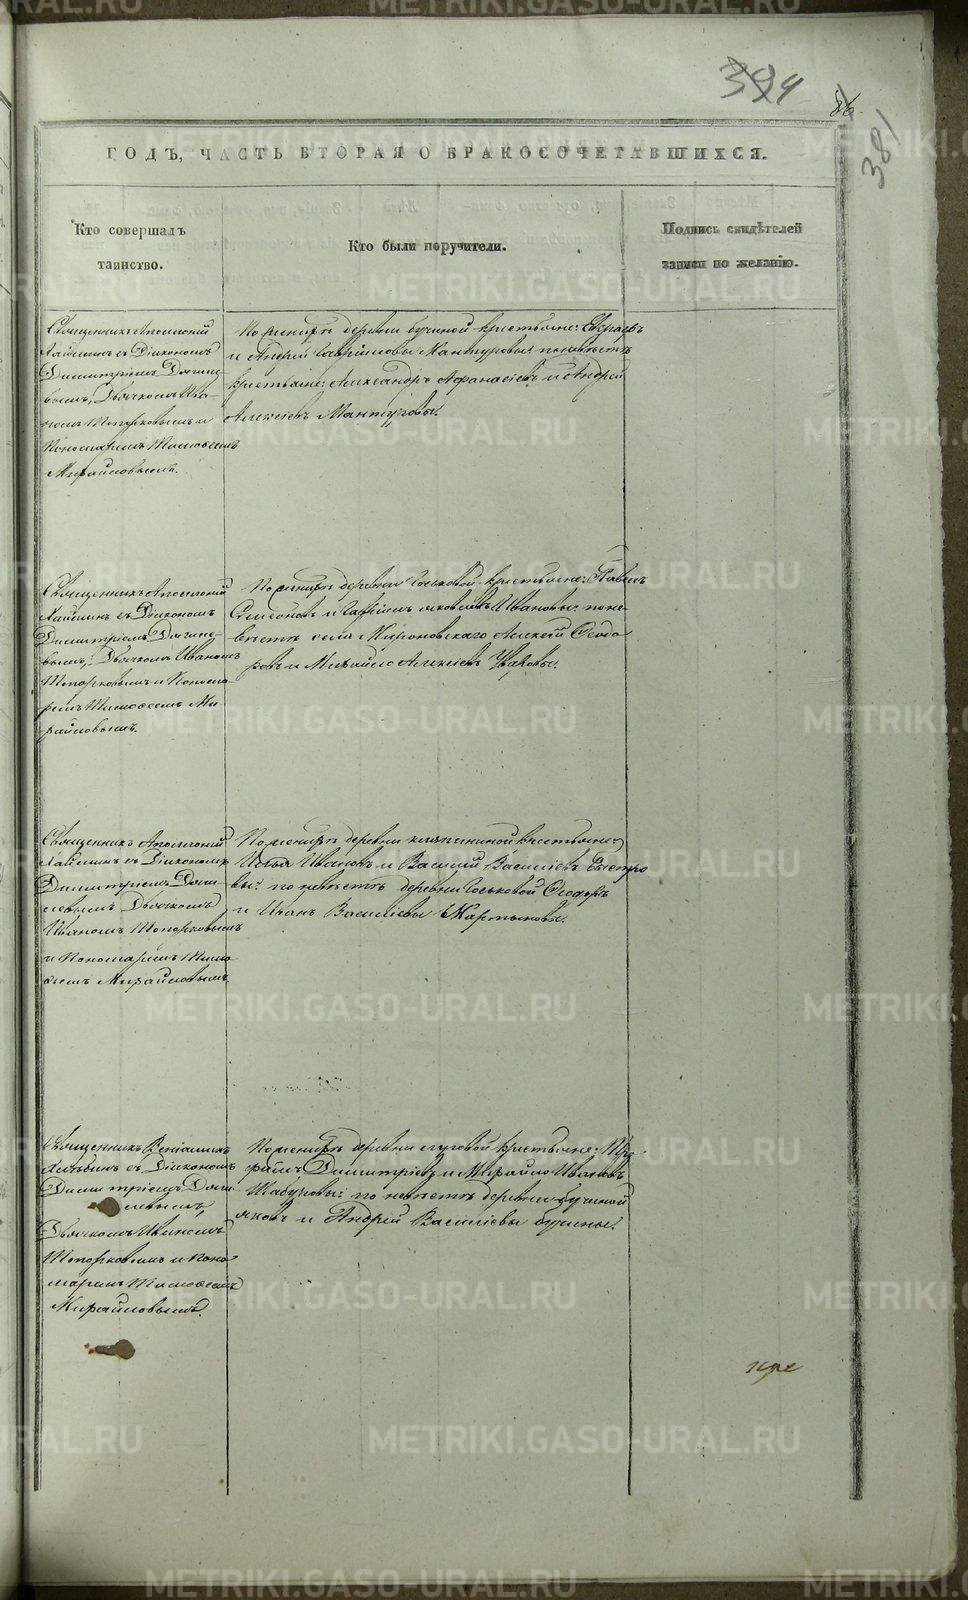 394
86
381
ГОДЪ, ЧАСТЬ ВТОРАЯ О БРАКОСОЧЕТАВШИХСЯ.
Кто совершалъ
таинство.
Кто были поручители.
Подпись свидѣтелей
записи по желанію.
Священникъ Аполлоній
съ Діакономъ
Димитріемъ
Дьячкомъ Ива-
номъ Топорковымъ и
Пономаремъ Тимоѳеемъ
Михайловымъ.
По женихѣ деревни бучиной крестьяне:
и Андрей Гавриловы Мантуровы: по невѣстѣ
крестьяне: Александръ Афанасіевъ и Андрей
Алексіевъ Мантуровы.
Священникъ Аполлоній
съ Діакономъ
Димитріемъ
Дьячкомъ Иваномъ
Топорковымъ и Понома-
ремъ Тимоѳеемъ Ми-
хайловымъ.
По женихѣ деревни крестьяне: Павелъ
Семеновъ и яковлевъ Ивановы: по не-
вѣстѣ села Мироновскаго Алексѣй Ѳедо-
ровъ и Михайло Алексіевъ Уваровы.
Священникъ Аполлоній
съ Діакономъ
Димитріемъ
Дьячкомъ
Иваномъ Топорковымъ
и Пономаремъ Тимо-
ѳеемъ Михайловымъ.
По женихѣ деревни крестьяне:
Илья Ивановъ и Василій Василіевъ
по невѣстѣ деревни Ѳедоръ
и Иванъ Василіевы Мартыновы.
Священникъ Веніаминъ
съ Діакономъ
Димитріемъ
Дьячкомъ Иваномъ
Топорковымъ и Поно-
маремъ Тимоѳеемъ
Михайловымъ.
По женихѣ деревни крестьяне:
Димитріевъ и Михайло Ивановъ
Шабуровы: по невѣстѣ деревни бучиной
яковъ и Андрей Василіевы бучины.
METRIKI.GASO-URAL.RU